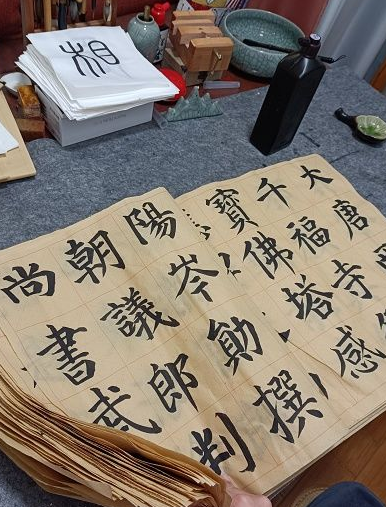 大唐
千福寺
寶佛塔感
陽岑勛撰
朝議郎判
尚書武
相